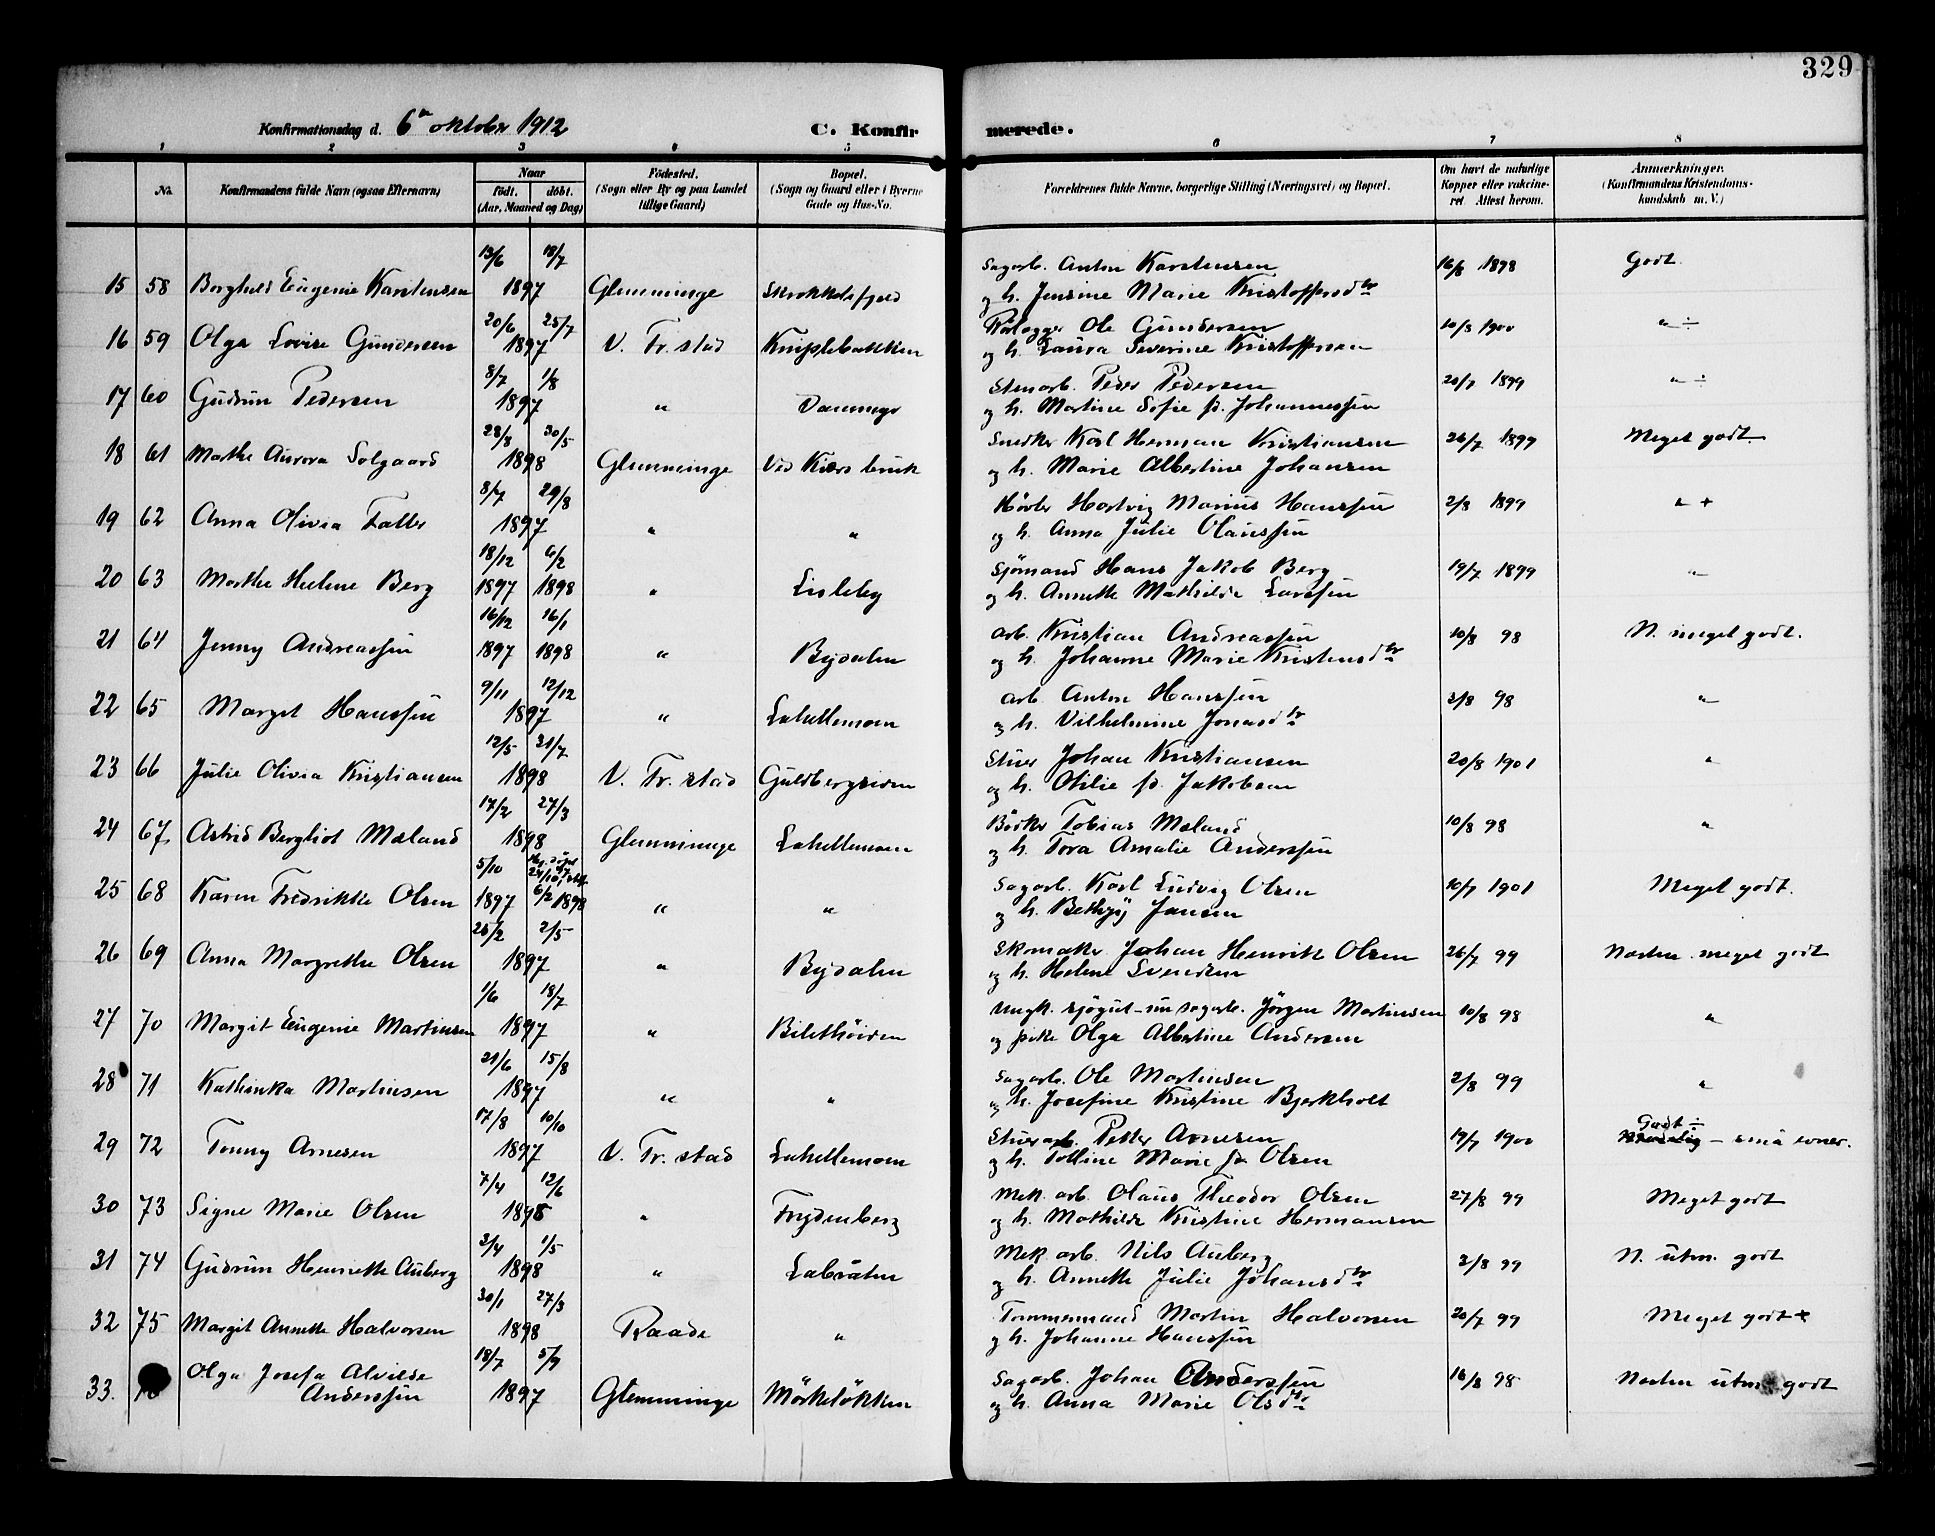 329
Konfirmationsdag d. 6te oktober 1912 C. Konfirmerede.
1 2 3 4 5 6 7 8
No. Konfirmandens fulde Navn (ogsaa Efternavn) Naar født. døbt. (Aar, Maaned og Dag) Fødested. (Sogn eller By og paa Landet tillige Gaard) Bopæl. (Sogn og Gaard eller i Byerne Gade og Hus-No. Forældrenes fulde Navne, borgerlige Stilling (Næringsvei) og Bopæl. Om havt de naturlige Kopper eller vakcineret. Attest herom. Anmærkninger. (Konfirmandens Kristendomskundskab m. V.)
13/6 18/7 Sagarb. Anton Karstensen 16/8 1898 Godt.
15 58 Borghild Eugenie Karstensen 1897 Glemminge Skrokkelsfjeld og h. Jensine Marie Kristoffersdtr
20/6 25/7 Rørlægger Ole Gundersen 10/8 1900 " ÷
16 59 Olga Lovise Gundersen 1897 V. Fr. stad Kniplebakken og h. Laura Severine Kristoffersen
8/7 1/8 Stenarb. Peder Pedersen 20/7 1899 " ÷
17 60 Gudrun Pedersen 1897 " Dammyr og h. Martine Sofie f. Johannessen
28/3 30/5 Snedker Karl Herman Kristiansen 26/7 1899 Meget godt
18 61 Marthe Aurora Solgaard 1898 Glemminge Ved Kiærs bruk og h. Marie Albertine Johansen
8/7 29/8 Høvler Hartvig Marius Hanssen 2/8 1899 " +
19 62 Anna Olivia Faller 1897 " " og h. Anna Julie Olaussen
18/12 6/2 Sjømand Hans Jakob Berg 19/7 1899 "
20 63 Marthe Helene Berg 1897 1898 " Lisleby og h. Annette Mathilde Larssen
16/12 16/1 Arb. Kristian Andreassen 10/8 98 N. meget godt.
21 64 Jenny Andreassen 1897 1898 " Bydalen og h. Johanne Marie Kristensdtr
9/11 12/12 Arb. Anton Hanssen 2/8 98 "
22 65 Margit Hanssen 1897 " Lahellemoen og h. Vilhelmine Jonasdtr
12/5 21/7 Stuer Johan Kristiansen 20/8 1901 "
23 66 Julie Olivia Kristiansen 1898 V. Fr. stad Guldbergsiden og h. Otilie f. Jakobsen
17/2 27/3 Bødker Tobias Mæland 10/8 98 "
24 67 Astrid Bergliot Mæland 1898 Glemminge Lahellemoen og h. Tora Amalie Anderssen
5/10 Sagarb. Karl Ludvig Olsen 10/7 1901 Meget godt.
25 68 Karen Fredrikke Olsen 1897 6/2 1898 " " og h. Bethzy Jansen
25/2 2/5 Skomaker Johan Henrik Olsen 26/7 99 Næsten meget godt
26 69 Anna Margrethe Olsen 1897 " Bydalen og h. Helene Svendsen
1/6 18/7 Ungk. sjøgut - nu sagarb. Jørgen Martinsen 10/8 98 "
27 70 Margit Eugenie Martinsen 1897 " Bilethøiden og pike Olga Albertine Andersen
21/6 15/8 Sagarb. Ole Martinsen 2/8 99 "
28 71 Kathinka Martinsen 1897 " " og h. Josefine Kristine Bjerkholt
17/8 10/10 Stuerarb. Petter Arnesen 19/7 1900 Godt ÷ - små evner.
29 72 Tonny Arnesen 1897 V. Fr. stad Lahellemoen og h. Tolline Marie f. Olsen
7/4 12/6 Mek. arb. Olaus Theodor Olsen 27/8 99 Meget godt
30 73 Signe Marie Olsen 1898 " Frydenberg og h. Mathilde Kristine Hermansen
2/4 1/5 Mek. arb. Nils Auberg 2/8 99 N. utm. godt
31 74 Gudrun Henriette Auberg 1898 " Labråten og h. Annette Julie Johansdtr
30/1 27/3 Tømmermand Martin Halvorsen 20/7 99 Meget godt +
32 75 Margit Annette Halvorsen 1898 Raade " og h. Johanne Hanssen
Olga Josefa Alvilde 18/7 5/9 Sagarb. Johan Anderssen 16/8 98 Næsten utm. godt
33. Anderssen 1897 Glemminge Mørkeløkken og h. Anna Marie Olsdtr